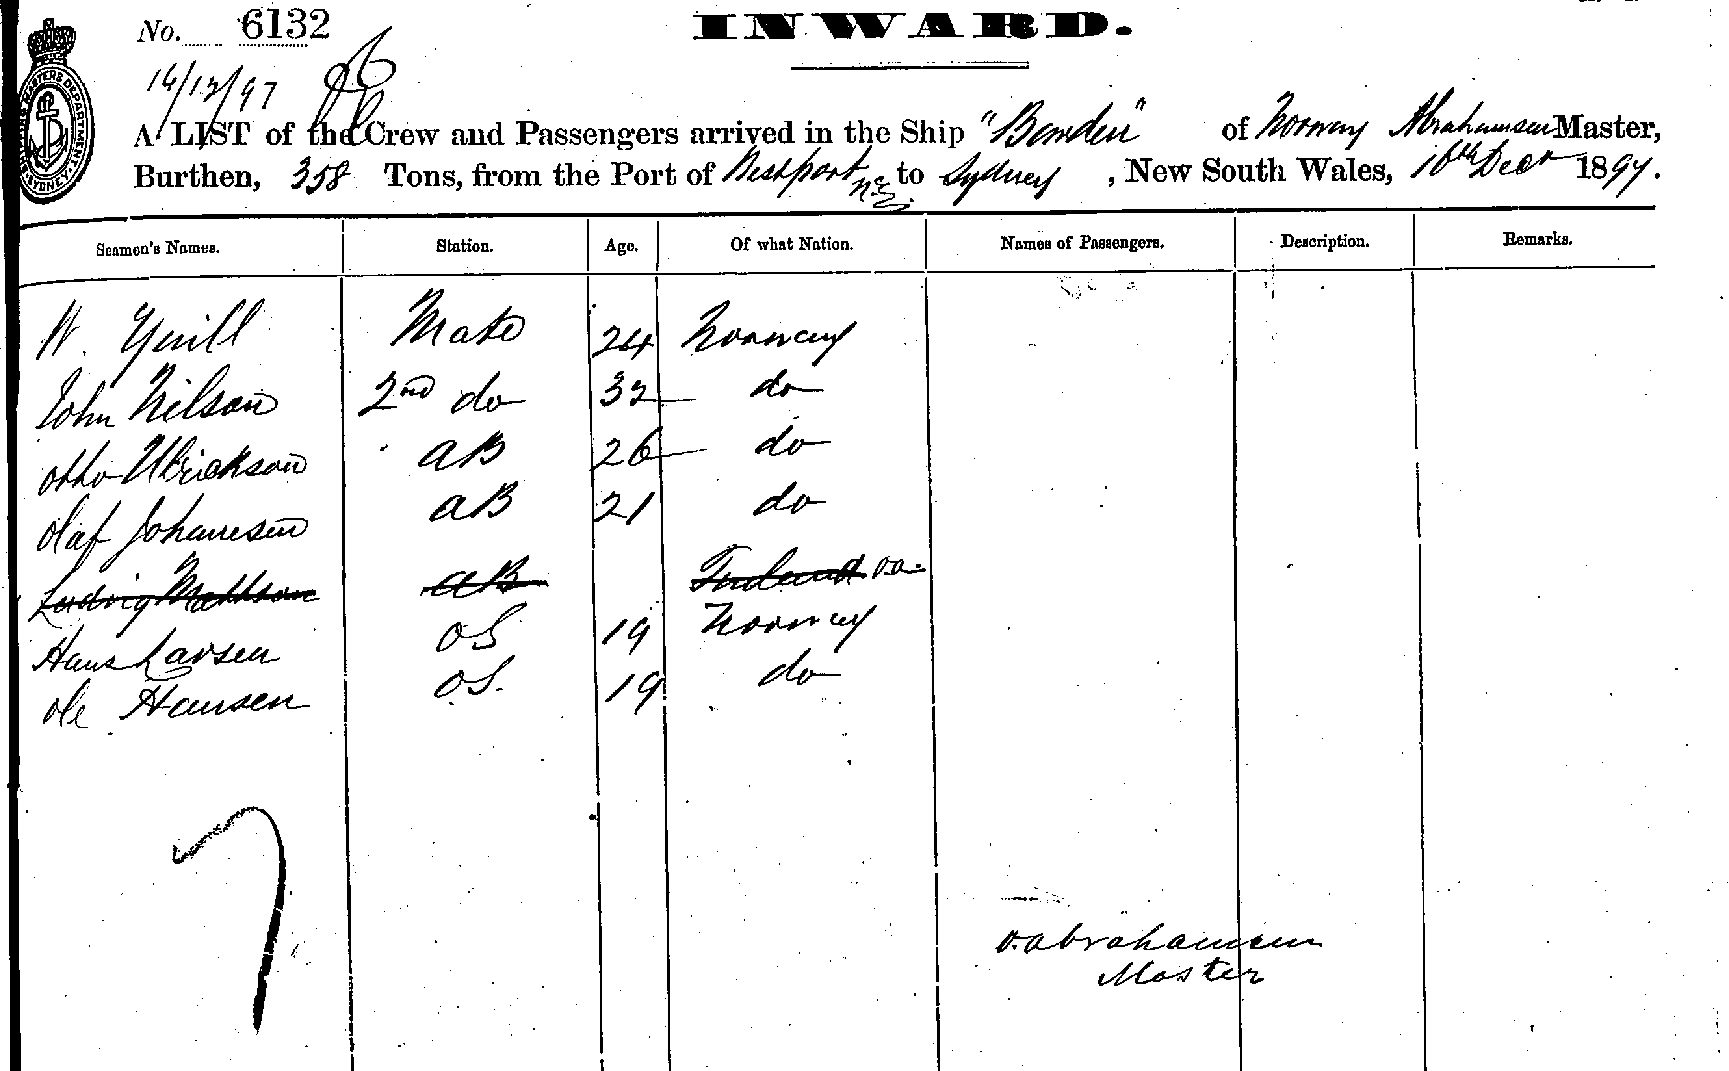 No. 6132
INWARD.
16/12/97
A LIST of the Crew and Passengers arrived in the Ship "Bowden" of Norway Abrahamsen Master,
Burthen, 358 Tons, from the Port of Westport N.Z. to Sydney, New South Wales, 16th Decr 1897.
Seamen's Names. Station. Age. Of what Nation. Names of Passengers. Description. Remarks.
Mate 24 Norway
John Nilson 2nd do 32 do
Otto Ulrickson AB 26 do
Olaf Johanesen AB 21 do
Ludvig Mattson AB
Hans Larsen OS 19 Norway
Ole Hansen OS. 19 do
O. Abrahamsen
Master